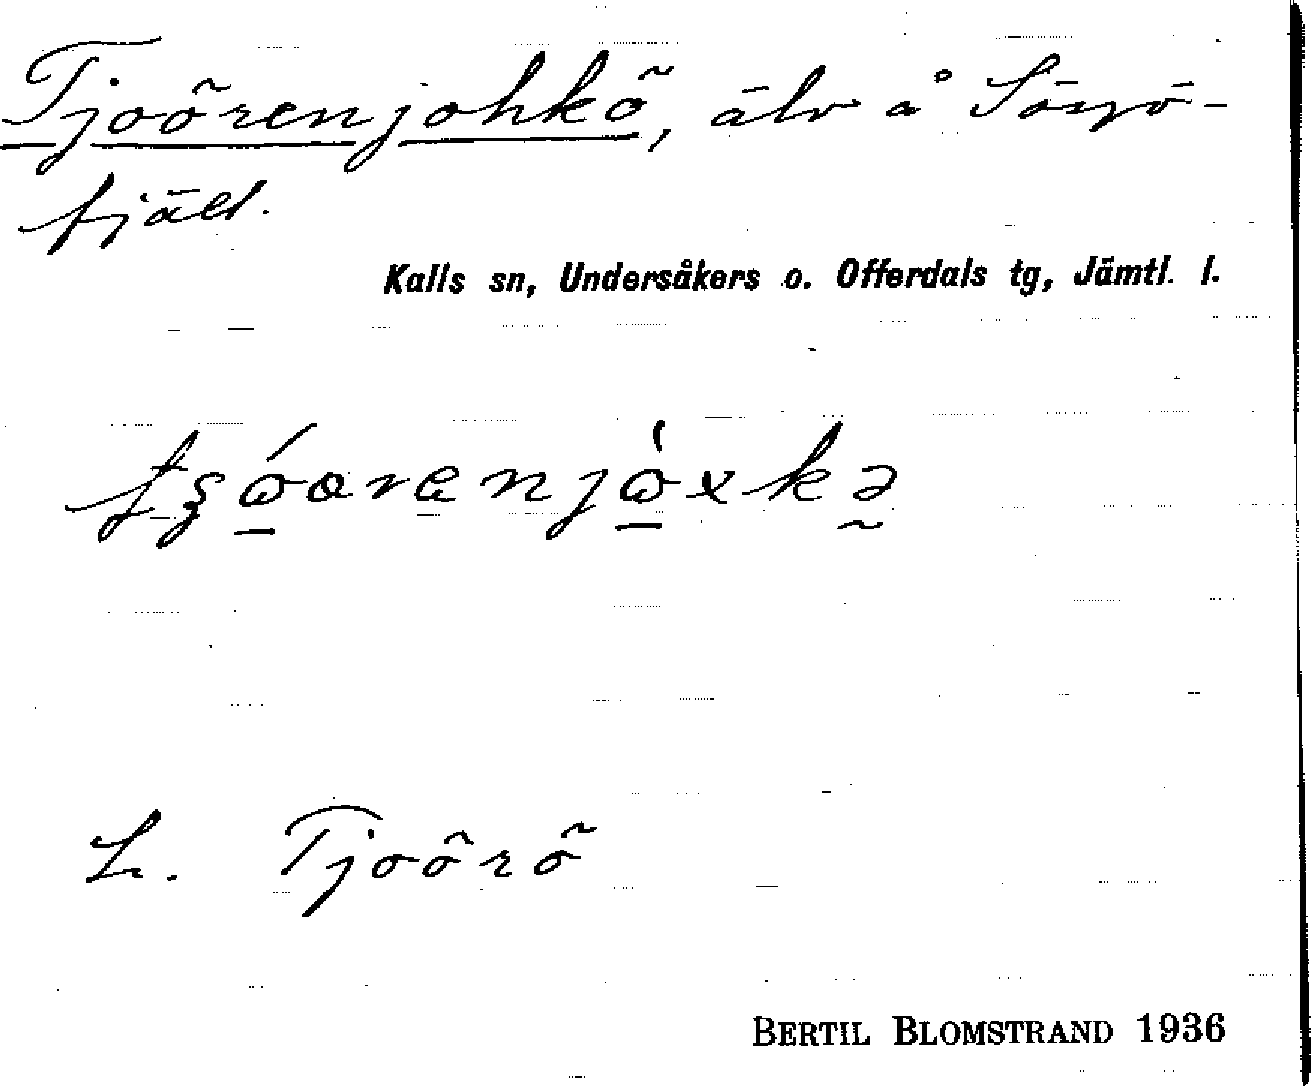 Tjoõrenjohkõ, älv å Sösjö-
fjäll.
Kalls sn, Undersåkers o. Offerdals tg, Jämtl. l.
L. Tjoõrõ
BERTIL BLOMSTRAND 1936